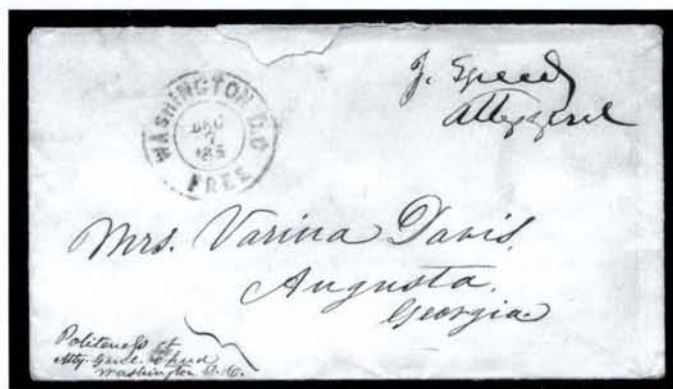 WASHINGTON D.C.
DEC
7
FREE
J. Speed
Atty genl
Mrs. Varina Davis.
Augusta.
Georgia.
Politeness of
Atty. Genl. Speed
Washington D.C.